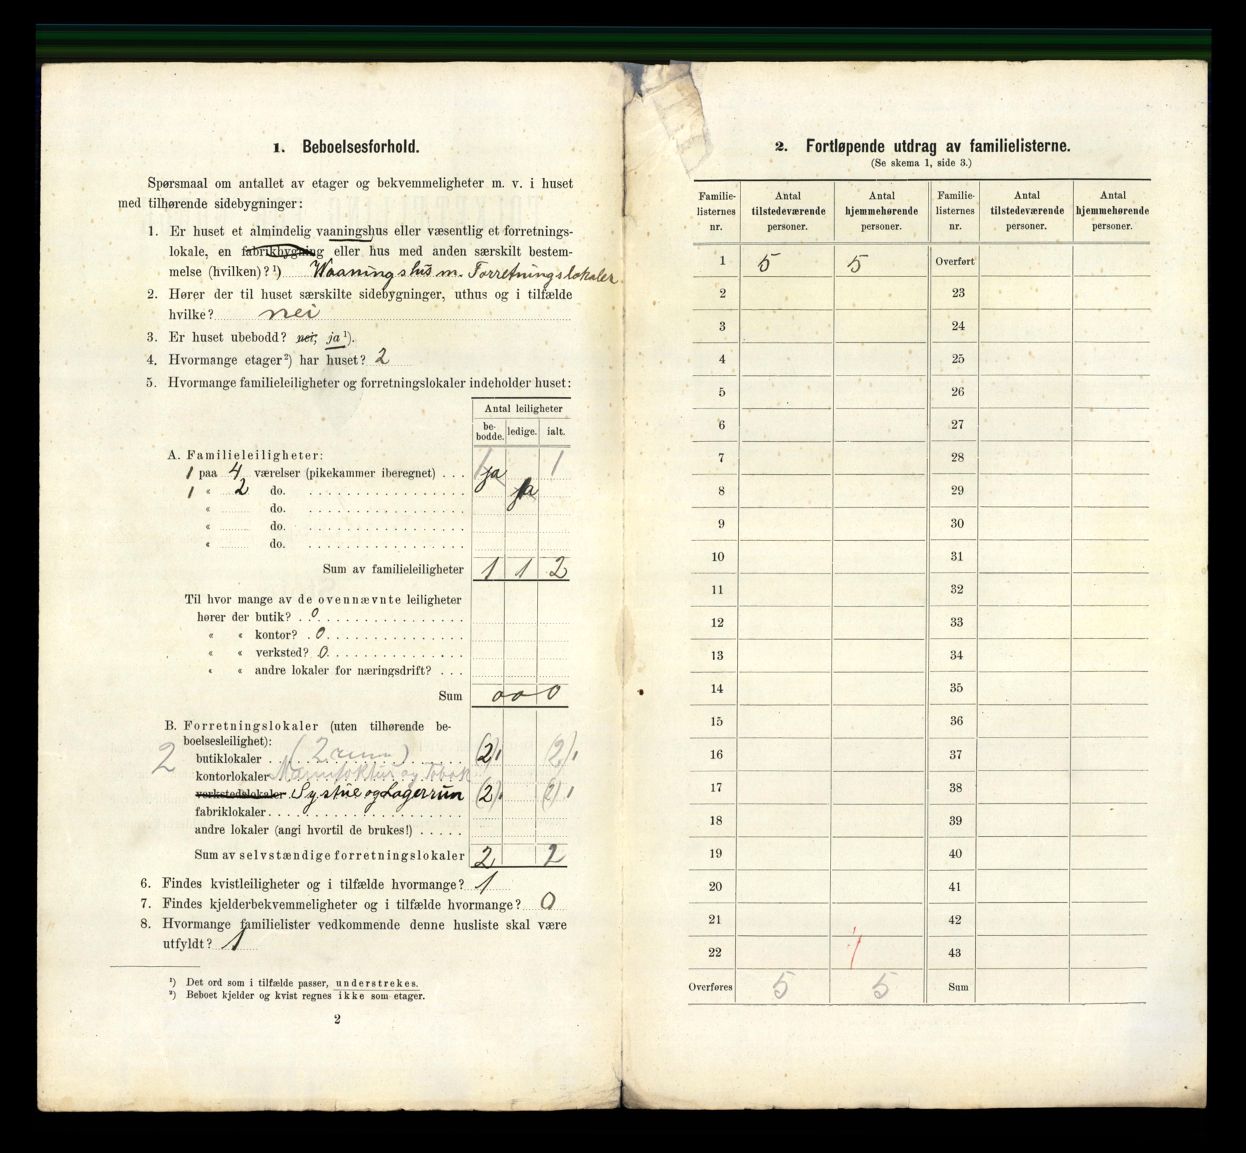 1. Beboelsesforhold.
Spørsmaal om antallet av etager og bekvemmeligheter m. v. i huset
med tilhørende sidebygninger:
1. Er huset et almindelig vaaningshus eller væsentlig et forretnings-
lokale, en fabrikbygning eller hus med anden særskilt bestem-
melse (hvilken)? ¹) Waaningshus m. Forretningslokaler
2. Hører der til huset særskilte sidebygninger, uthus og i tilfælde
hvilke? nei
3. Er huset ubebodd? nei, ja ¹).
4. Hvormange etager ²) har huset? 2
5. Hvormange familieleiligheter og forretningslokaler indeholder huset:
Antal leiligheter
be-bodde. ledige. ialt.
A. Familieleiligheter:
1 paa 4 værelser (pikekammer iberegnet) . . . 1 ja 1
1 « 2 do. ja
« do.
« do.
« do.
Sum av familieleiligheter 1 1 2
Til hvor mange av de ovennævnte leiligheter
hører der butik? 0
« « kontor? 0
« « verksted? 0
« « andre lokaler for næringsdrift? . . .
Sum 0 0 0
B. Forretningslokaler (uten tilhørende be-
2 boelsesleilighet): (2 rum)
butiklokaler (2) 1 (2) 1
kontorlokaler Manufaktur og Tobak
verkstedslokaler Systue og Lagerrum (2) 1 (2) 1
fabriklokaler
andre lokaler (angi hvortil de brukes!)
Sum av selvstændige forretningslokaler 2 2
6. Findes kvistleiligheter og i tilfælde hvormange? 1
7. Findes kjelderbekvemmeligheter og i tilfælde hvormange? 0
8. Hvormange familielister vedkommende denne husliste skal være
utfyldt? 1
¹) Det ord som i tilfælde passer, understrekes.
²) Beboet kjelder og kvist regnes ikke som etager.
2
2. Fortløpende utdrag av familielisterne.
(Se skema 1, side 3.)
Familie-listernes nr. Antal tilstedeværende personer. Antal hjemmehørende personer. Familie-listernes nr. Antal tilstedeværende personer. Antal hjemmehørende personer.
1 5 5 Overført
2 23
3 24
4 25
5 26
6 27
7 28
8 29
9 30
10 31
11 32
12 33
13 34
14 35
15 36
16 37
17 38
18 39
19 40
20 41
21 42
22 43
Overføres 5 5 Sum